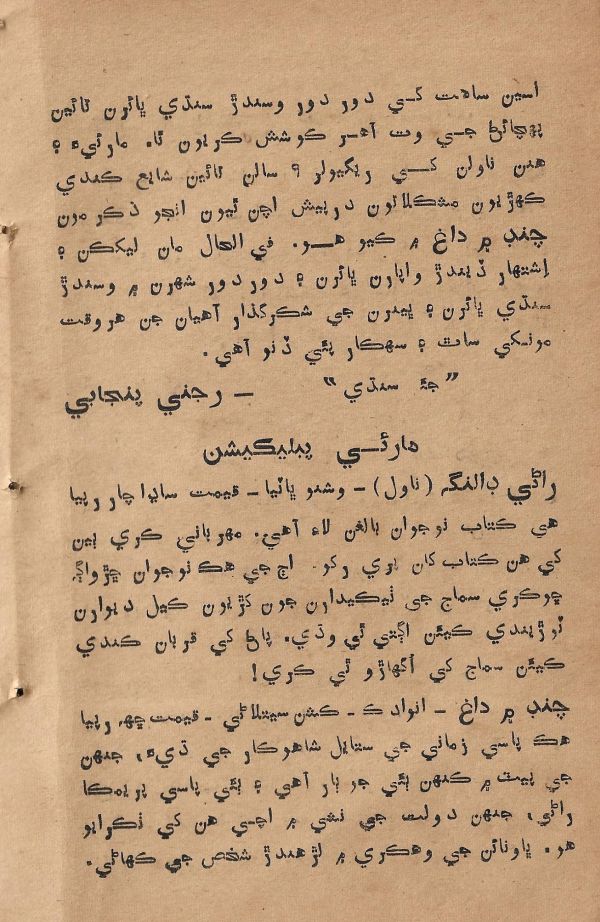 اسين ساهت کي دور دور وسندڙ سنڌي ڀائرن تائين
پهچائڻ جي وت آهر ڪوشش ڪريون ٿا. مارئيءَ ۽
هنن ناولن کي ريگيولر ٩ سالن تائين شايع ڪندي
ڪهڙيون مشڪلاتون درپيش اچن ٿيون انجو ذڪر مون
چنڊ ۾ داغ ۾ ڪيو هو. في الحال مان ليککن ۽
اِشتهار ڏيندڙ واپارن ڀائرن ۽ دور دور شهرن ۾ وسندڙ
سنڌي ڀائرن ۽ ڀينرن جي شڪرگذار آهيان جن هر وقت
مونکي ساٿ ۽ سهڪار پئي ڏنو آهي.
”جئه سنڌي“ — رجني پنجابي
مارئي پبليڪيشن
راڻي ڊالنگہ (ناول) — وشنو ڀاٽيا — قيمت ساڍا چار رپيا
هي ڪتاب نوجوان بالغن لاءِ آهي. مهرباني ڪري ٻين
کي هن ڪتاب کان پري رکو. اڄ جي هڪ نوجوان ڇڙواڳ
ڇوڪري سماج جي ٺيڪيدارن جون کڙيون ڪيل ديوارن
ٽوڙيندي ڪيئن اڳتي ٿي وڌي. پاڻ کي قربان ڪندي
ڪيئن سماج کي اُگهاڙو ٿي ڪري!
چنڊ ۾ داغ — انوادڪ — ڪشن سيتلاڻي — قيمت ڇهہ رپيا
هڪ پاسي زماني جي ستايل شاهوڪار جي ڌيءَ، جنهن
جي پيٽ ۾ ڪنهن ٻئي جو ٻار آهي ۽ ٻئي پاسي پريمڪا
راڻي، جنهن دولت جي نشي ۾ اچي هن کي ٺڪرايو
هو. ڀاونائن جي وهڪري ۾ لڙهندڙ شخص جي ڪهاڻي.